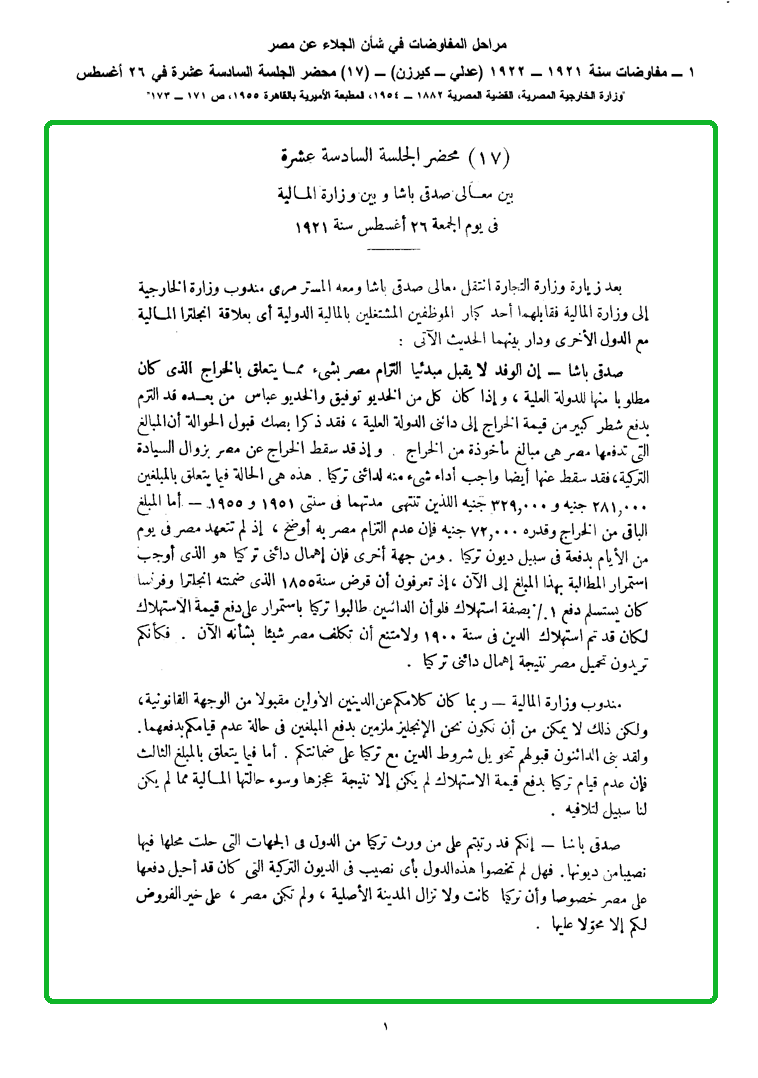 مراحل المفاوضات في شأن الجلاء عن مصر
١ ــ مفاوضات سنة ١٩٢١ ــ ١٩٢٢ (عدلي ــ كيرزن) ــ (١٧) محضر الجلسة السادسة عشرة في ٢٦ أغسطس
"وزارة الخارجية المصرية، القضية المصرية ١٨٨٢ ــ ١٩٥٤، المطبعة الأميرية بالقاهرة ١٩٥٥، ص ١٧١ ــ ١٧٣"
(١٧) محضر الجلسة السادسة عشرة
بين معالى صدقى باشا وبين وزارة المالية
فى يوم الجمعة ٢٦ أغسطس سنة ١٩٢١
بعد زيارة وزارة التجارة انتقل معالى صدقى باشا ومعه المستر مرى مندوب وزارة الخارجية
إلى وزارة المالية فقابلهما أحد كبار الموظفين المشتغلين بالمالية الدولية أى بعلاقة انجلترا المالية
مع الدول الأخرى ودار بينهما الحديث الآتى :
صدقى باشا — إن الوفد لا يقبل مبدئيا التزام مصر بشىء مما يتعلق بالخراج الذى كان
مطلوبا منها للدولة العلية ، وإذا كان كل من الخديو توفيق والخديو عباس من بعده قد التزم
بدفع شطر كبير من قيمة الخراج إلى دائنى الدولة العلية ، فقد ذكرا بصك قبول الحوالة أن المبالغ
التى تدفعها مصر هى مبالغ مأخوذة من الخراج . وإذ قد سقط الخراج عن مصر بزوال السيادة
التركية، فقد سقط عنها أيضا واجب أداء شىء منه لدائنى تركيا . هذه هى الحالة فيما يتعلق بالمبلغين
٢٨١,٠٠٠ جنيه و ٣٢٩,٠٠٠ جنيه اللذين تنتهى مدتهما فى سنتى ١٩٥١ و ١٩٥٥ — أما المبلغ
الباقى من الخراج وقدره ٧٢,٠٠٠ جنيه فإن عدم التزام مصر به أوضح ، إذ لم تتعهد مصر فى يوم
من الأيام بدفعة فى سبيل ديون تركيا . ومن جهة أخرى فإن إهمال دائنى تركيا هو الذى أوجب
استمرار المطالبة بهذا المبلغ إلى الآن ، إذ تعرفون أن قرض سنة ١٨٥٥ الذى ضمنته انجلترا وفرنسا
كان يستلم دفع ١ ٪ بصفة استهلاك فلو أن الدائنين طالبوا تركيا باستمرار على دفع قيمة الاستهلاك
لكان قد تم استهلاك الدين فى سنة ١٩٠٠ ولامتنع أن تكلف مصر شيئا بشأنه الآن . فكأنكم
تريدون تحميل مصر نتيجة إهمال دائنى تركيا .
مندوب وزارة المالية — ربما كان كلامكم عن الدينين الأولين مقبولا من الوجهة القانونية،
ولكن ذلك لا يمكن من أن نكون نحن الإنجليز ملزمين بدفع المبلغين فى حالة عدم قيامكم بدفعهما.
ولقد بنى الدائنون قبولهم تحويل شروط الدين مع تركيا على ضمانتكم . أما فيما يتعلق بالمبلغ الثالث
فإن عدم قيام تركيا بدفع قيمة الاستهلاك لم يكن إلا نتيجة عجزها وسوء حالتها المالية مما لم يكن
لنا سبيل لتلافيه .
صدقى باشا — إنكم قد رتبتم على من ورث تركيا من الدول فى الجهات التى حلت محلها فيها
نصيبا من ديونها. فهل لم تخصوا هذه الدول بأى نصيب فى الديون التركية التى كان قد أحيل دفعها
على مصر خصوصا وأن تركيا كانت ولا تزال المدينة الأصلية ، ولم تكن مصر ، على خير الفروض
لكم إلا محوّلا عليها .
١